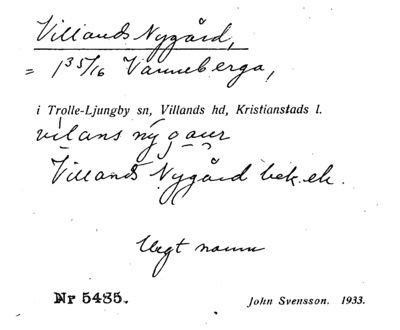 Villands Nygård,
= 1 35/16 Vanneberga,
i Trolle-Ljungby sn, Villands hd, Kristianstads l.
vilans nygaur
Villands Nygård bek. ek.
Uegt namn
Nr 5485.
John Svensson. 1933.